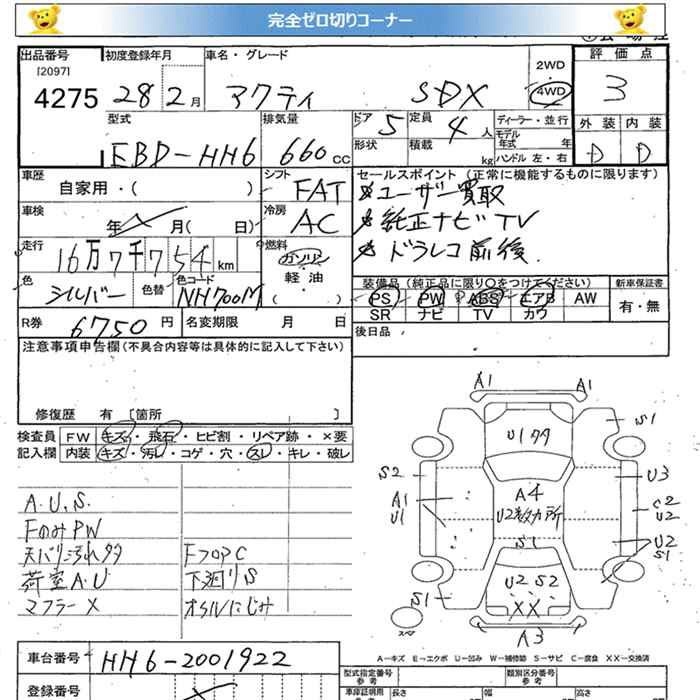 完全ゼロ切りコーナー
出品番号 初度登録年月 車名・グレード 評価点
[2097] 2WD
4275 28 2月 アクティ SDX 4WD 3
型式 排気量 ドア 5 定員 4人 ディーラー・並行 外装 内装
EBD-HH6 660cc 形状 積載 kg モデル年式 年 D D
ハンドル 左・右
車歴 シフト セールスポイント (正常に機能するものに限ります)
自家用・( ) FAT ユーザー買取
車検 冷房 純正ナビTV
年 月( 日) AC ドラレコ前後.
走行 燃料
16万7千754km ガソリン
色 色替 色コード 軽油 装備品(純正品に限り○をつけてください) 新車保証書
シルバー NH700M ( ) PS PW ABS エアB AW 有・無
SR ナビ TV カワ
R券 6750円 名変期限 月 日 後日品
注意事項申告欄(不具合内容等は具体的に記入して下さい)
修復歴 有 [箇所 ]
検査員 FW キズ・飛石・ヒビ割・リペア跡・×要
記入欄 内装 キズ・汚レ・コゲ・穴・スレ・キレ・破レ
A.U.S.
FのみPW
天バリ汚れ多 FフロアC
荷室A.U 下廻りS
マフラーX オイルにじみ
A1 A1
S1
U1多
S2 U3
A1 A4 C2
U1 U2数カ所 U2
S1 U2
S1
U2 S2
S1 XX
A3
A—キズ E—エクボ U—凹み W—補修跡 S—サビ C—腐食 XX—交換済
車台番号 HH6-2001922
型式指定番号 類別区分番号
参考 参考
登録番号 車庫証明用 長さ 幅 高さ